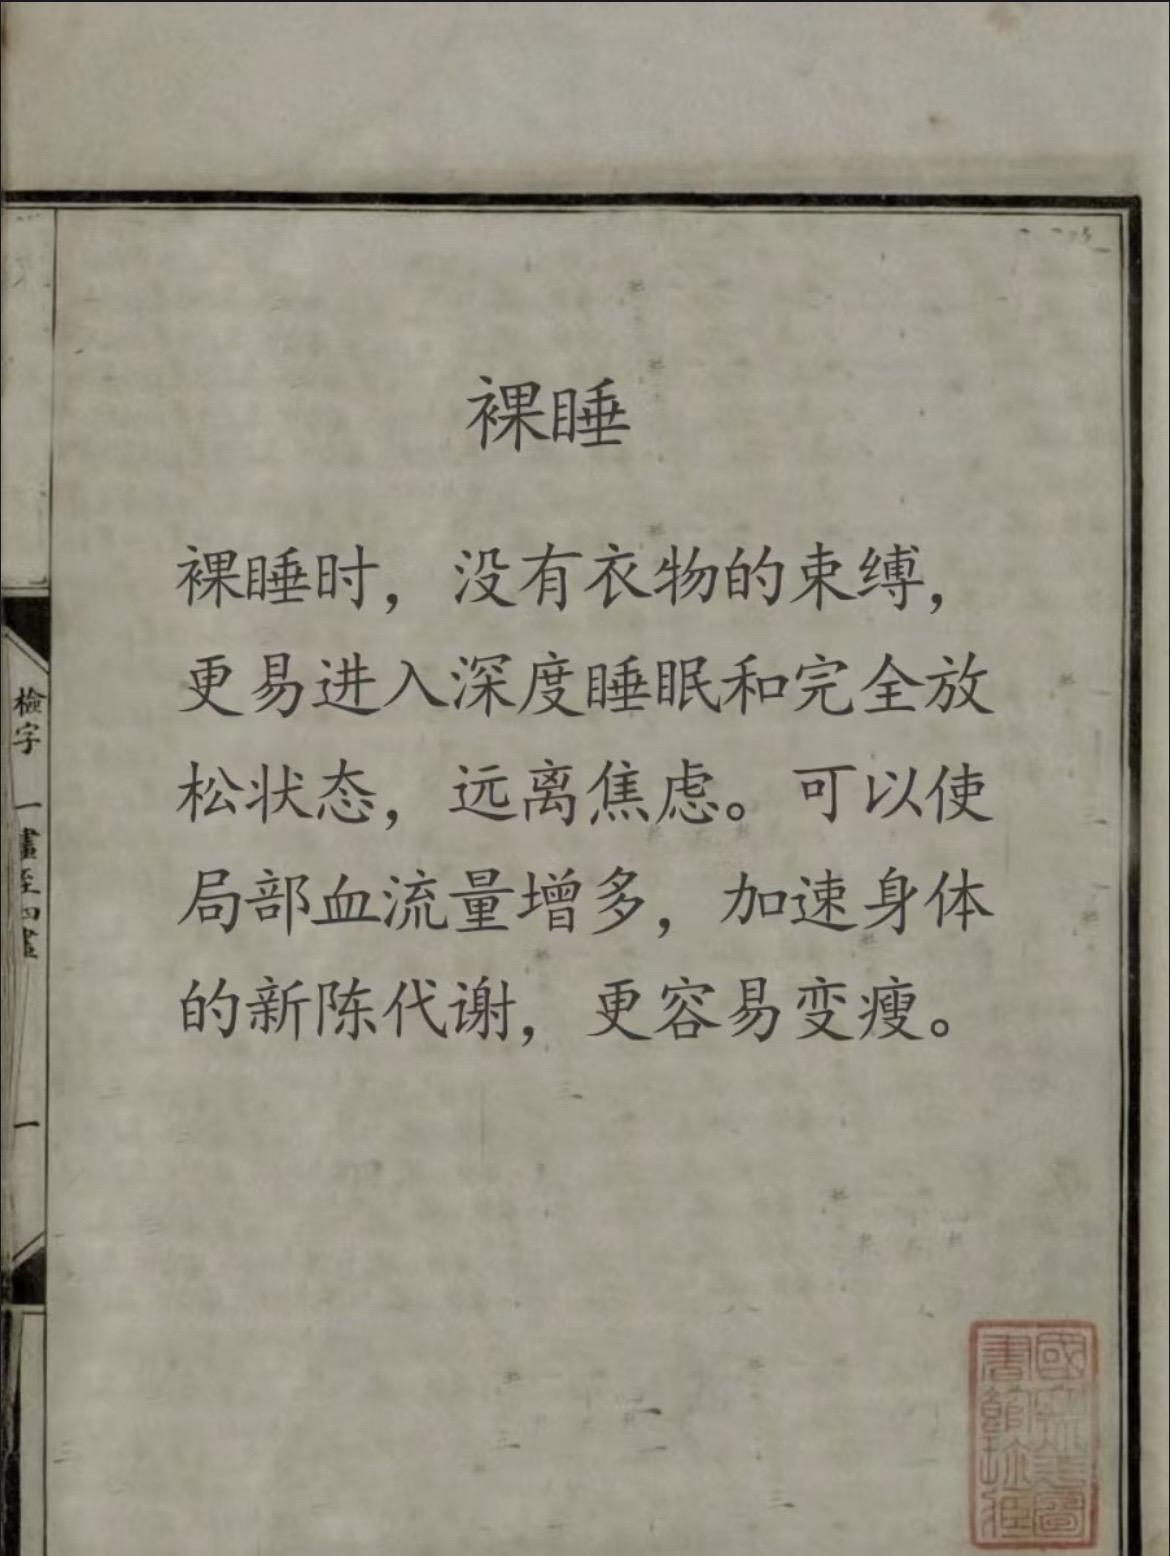 裸睡
裸睡时，没有衣物的束缚，
更易进入深度睡眠和完全放
松状态，远离焦虑。可以使
局部血流量增多，加速身体
的新陈代谢，更容易变瘦。
檢字 一畫至四畫
一